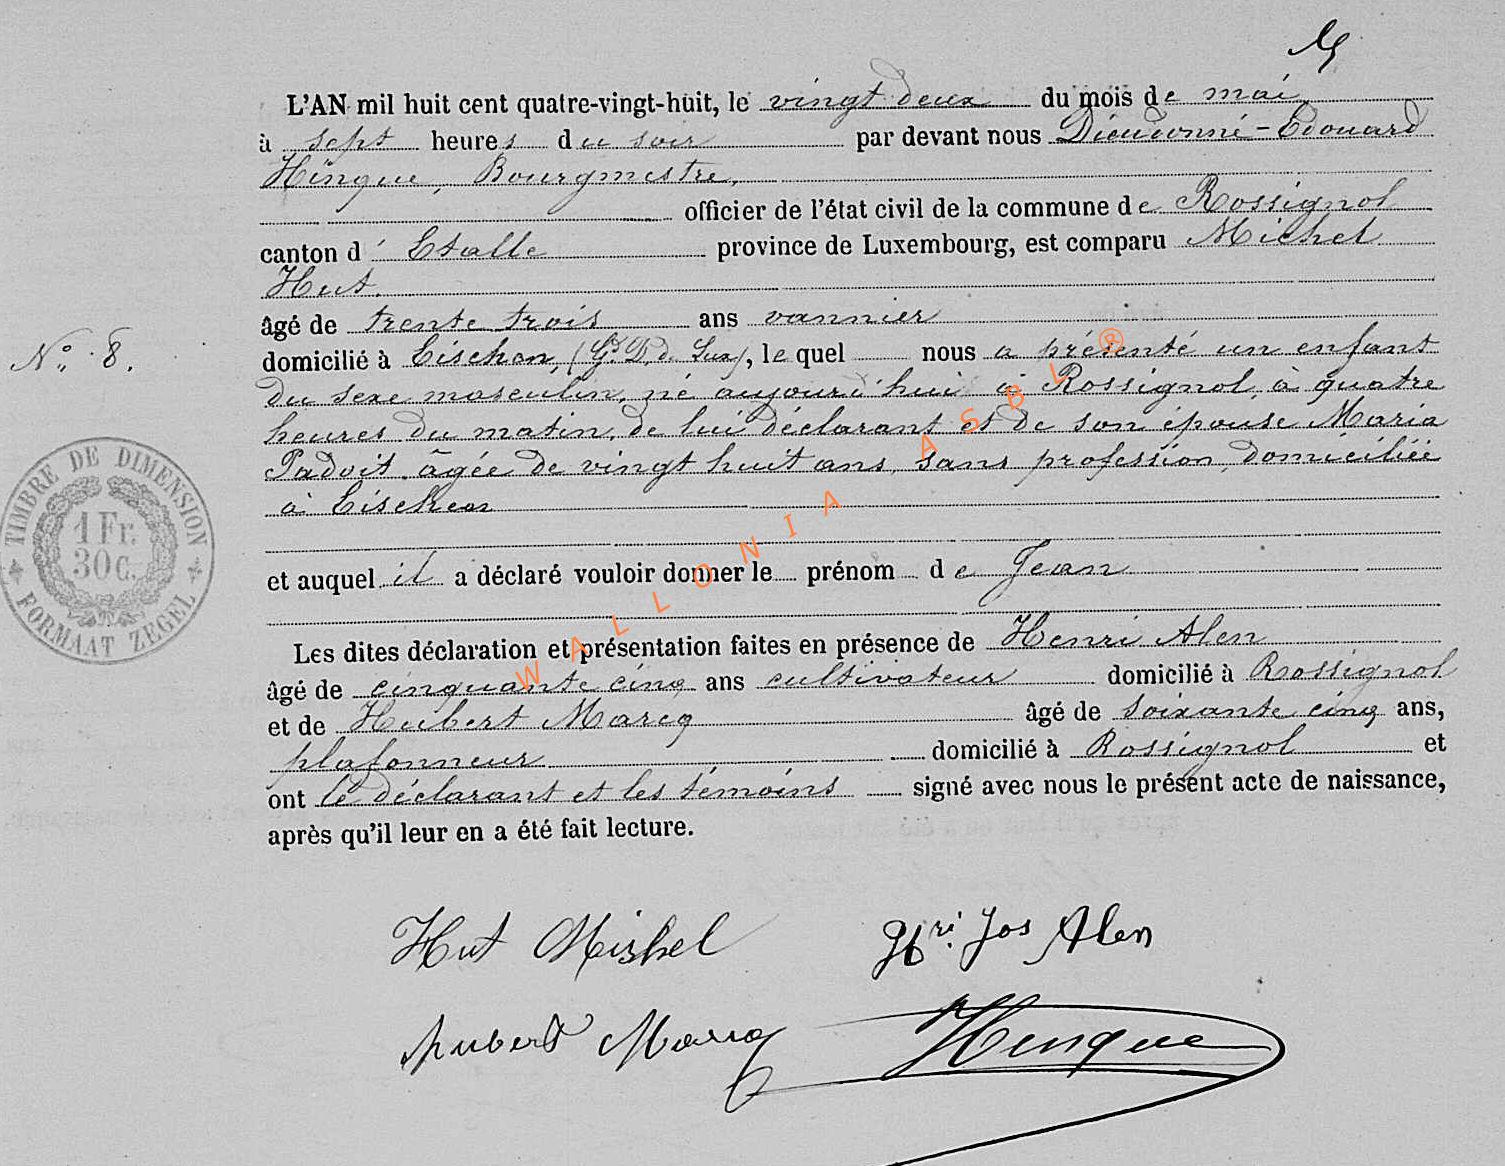 L'AN mil huit cent quatre-vingt-huit, le vingt deux du mois de mai,
à sept heures du soir par devant nous Dieudonné-Edouard
Hinque, Bourgmestre,
officier de l'état civil de la commune de Rossignol
canton d'Etalle province de Luxembourg, est comparu Michel
Hut.
âgé de trente trois ans vannier
N° 8.
domicilié à Eischen, (Gd D. de Lux), lequel nous a présenté un enfant
du sexe masculin, né aujourd'hui à Rossignol, à quatre
heures du matin, de lui déclarant et de son épouse Maria
Padoit âgée de vingt huit ans, sans profession, domiciliée
à Eischen
TIMBRE DE DIMENSION
1 Fr.
30 C.
FORMAAT ZEGEL
et auquel il a déclaré vouloir donner le prénom de Jean
Les dites déclaration et présentation faites en présence de Henri Alen
âgé de cinquante cinq ans cultivateur domicilié à Rossignol
et de Hubert Marcq âgé de soixante cinq ans,
plafonneur domicilié à Rossignol et
ont le déclarant et les témoins signé avec nous le présent acte de naissance,
après qu'il leur en a été fait lecture.
WALLONIA ASBL ®
Hut Mishel Hri Jos Alen
Hubert Marcq Hinque